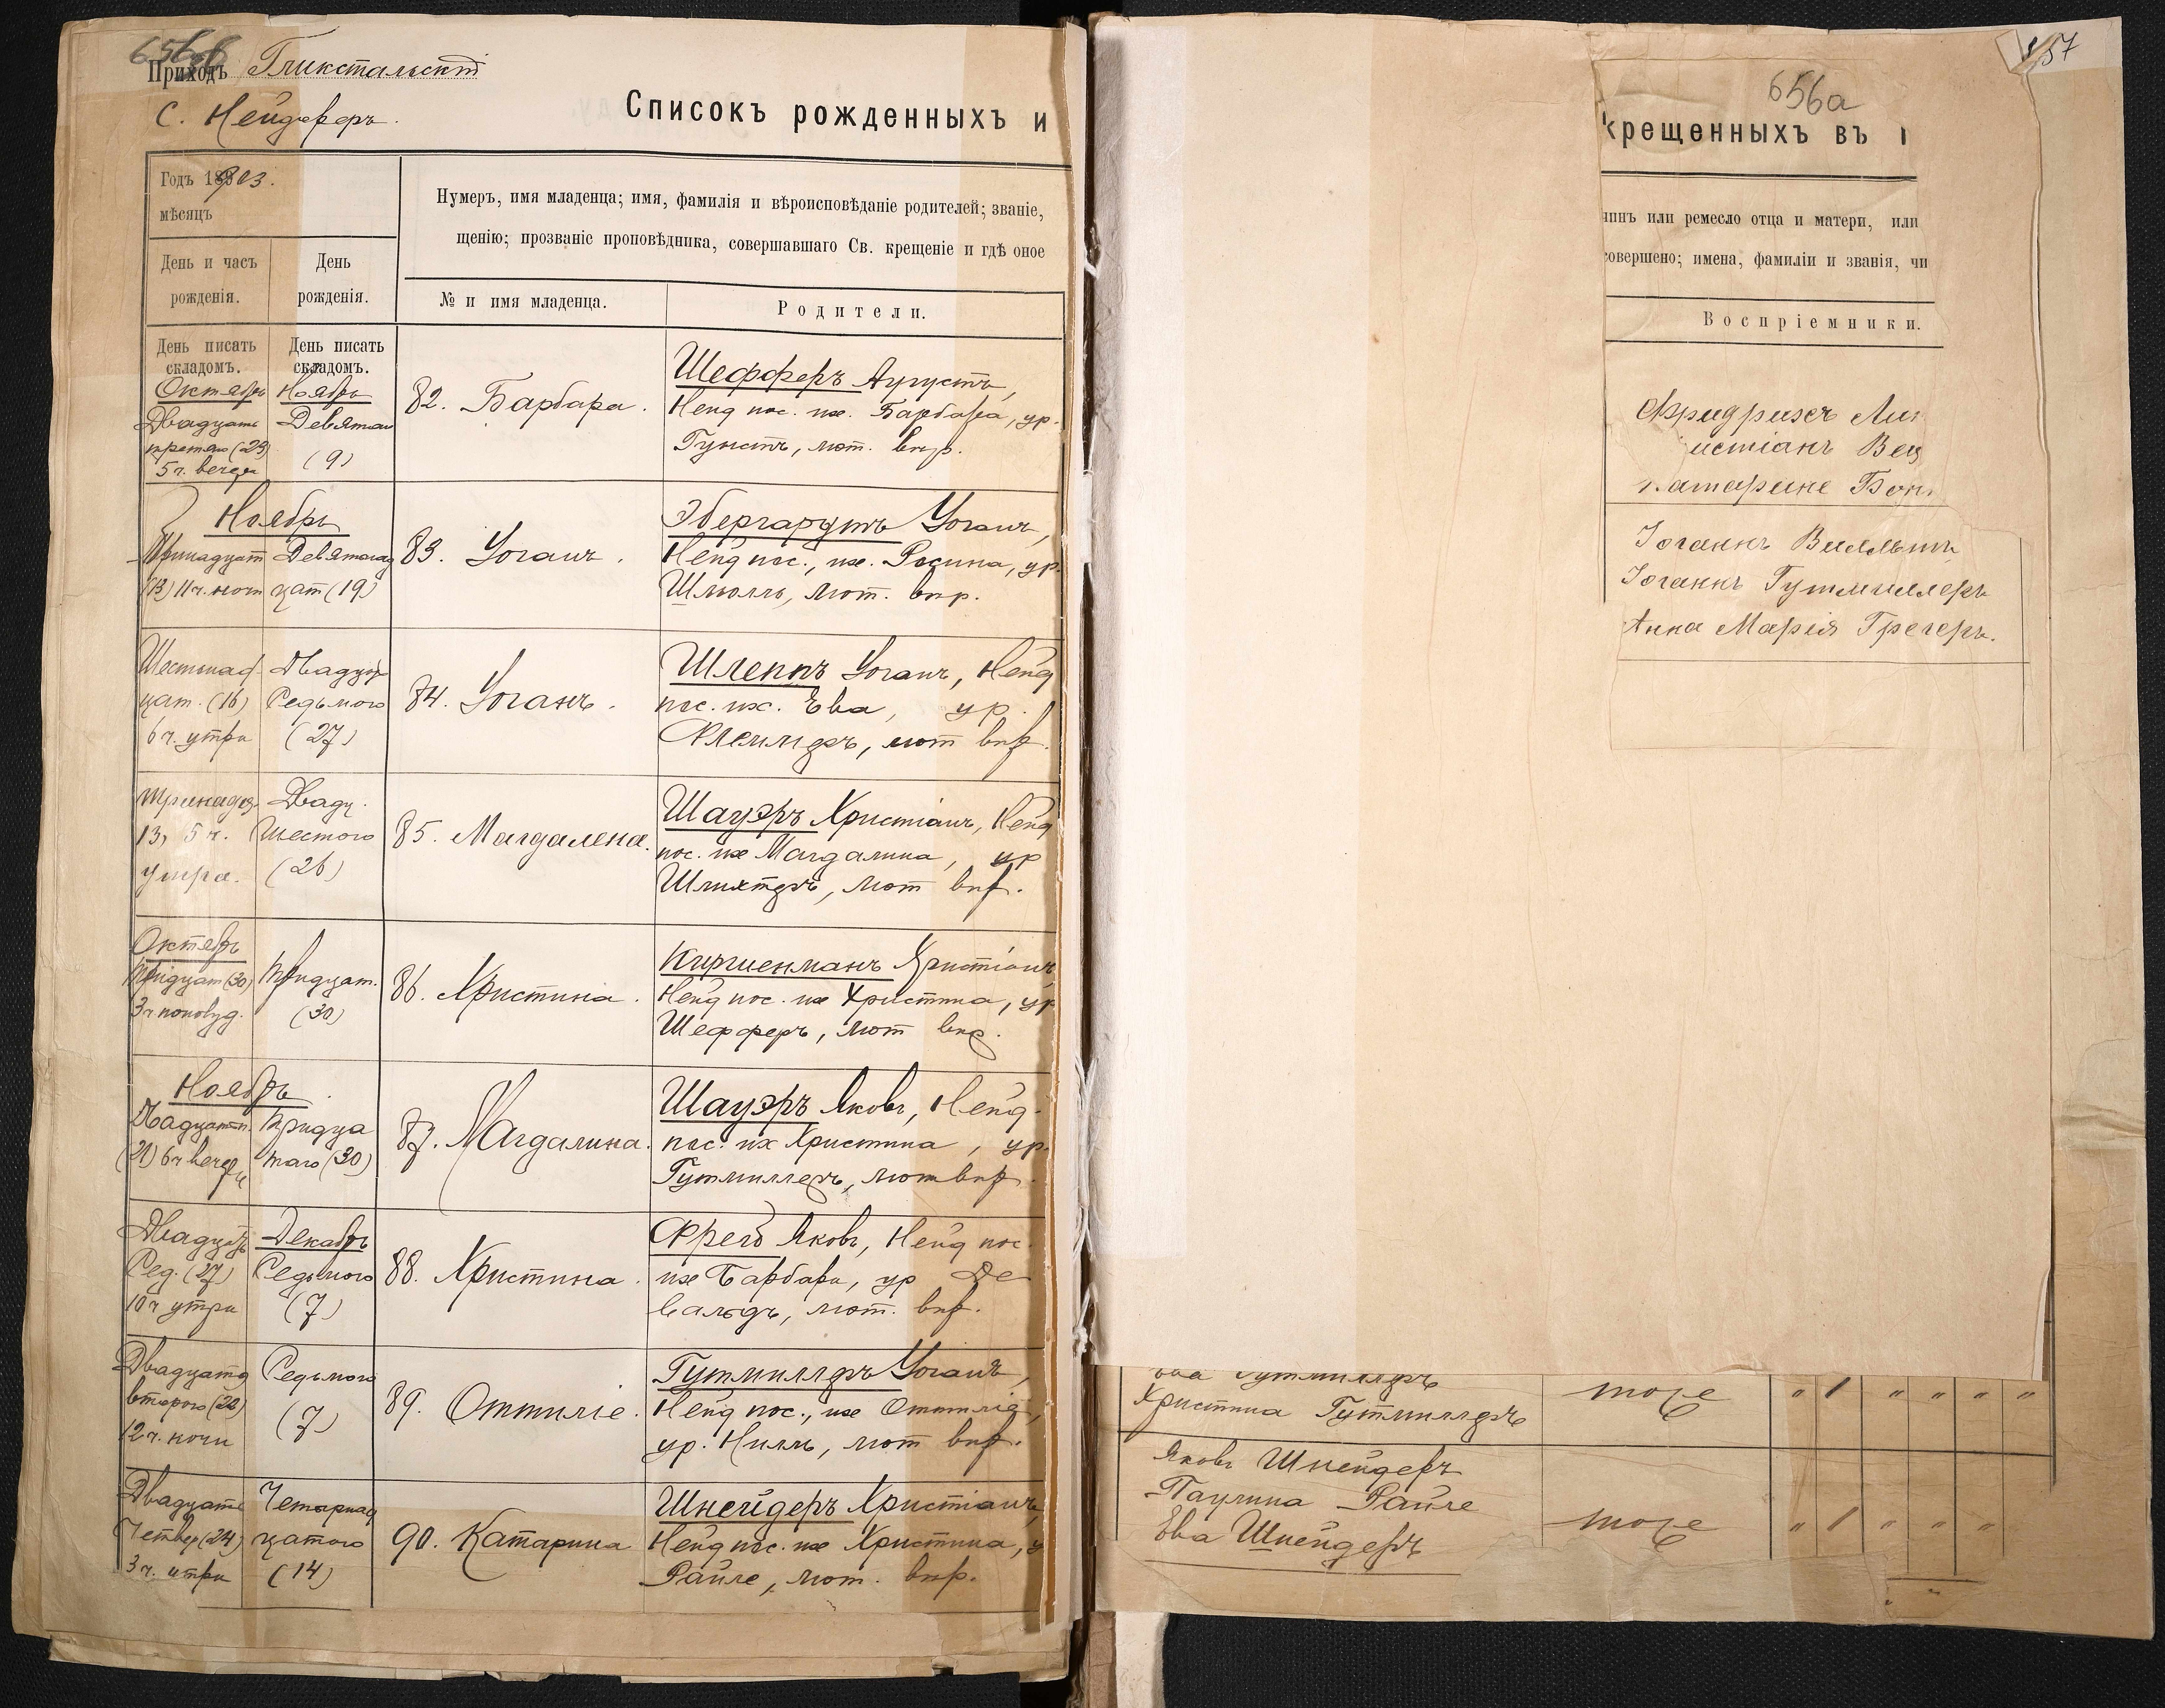 Приходъ Гликстальскій
С. Нейдорфъ.
Списокъ рожденныхъ и
Годъ 1903.
мѣсяцъ
Нумеръ, имя младенца; имя, фамилія и вѣроисповѣданіе родителей; званіе,
щенію; прозваніе проповѣдника, совершавшаго Св. крещеніе и гдѣ оное
День и часъ
рожденія.
День
рожденія.
№ и имя младенца.
Родители.
День писать
складомъ.
День писать
складомъ.
Октябрь
Двадцать
третьяго (23)
5 ч. вечера
Ноябрь
Девятаго
(9)
82. Барбара.
Шефферъ Августъ,
Нейд пос. же. Барбара, ур.
Гунстъ, лют. впр.
Ноябрь
Тринадцат
(13) 11 ч. ночи
Девятнад
цат (19)
83. Іоганъ.
Эбергардтъ Іоганъ,
Нейд пос., же. Росина, ур.
Шмолль, лют. впр.
Шестнад
цат. (16)
6 ч. утра
Двадцат
Седьмого
(27)
84. Іоганъ.
Шлеппъ Іоганъ, Нейд
пос. же. Ева, ур.
Флеммеръ, лют впр.
Тринадц.
13, 5 ч.
утра.
Двадц.
Шестого
(26)
85. Магдалена.
Шауэръ Христіанъ, Нейд
пос. же Магдалина, ур
Шлихтеръ, лют впр.
Октябрь
Тридцат (30)
3 ч пополуд.
Тридцат.
(30)
86. Христина.
Киршенманъ Христіанъ,
Нейд пос. же Христина, ур
Шефферъ, лют впр.
Ноябрь
(21) 6 ч вечера
Тридца
таго (30)
87. Магдалина.
Шауэръ Яковъ, Нейд.
пос. же Христина, ур.
Гутмиллеръ, лют впр.
Двадцать
Сед. (27)
10 ч утра
Декабрь
Седьмого
(7)
88. Христина.
Фрей Яковъ, Нейд пос.
же Барбара, ур Де
вальдъ, лют. впр.
Двадцать
второго (22)
12 ч. ночи
Седьмого
(7)
89. Оттиліе.
Гутмиллеръ Іоганъ,
Нейд пос., же Оттиліе,
ур. Нилль, лют впр.
Двадцать
Четвер (24)
3 ч. утра
Четырнад
цатого
(14)
90. Катарина
Шнейдеръ Христіанъ,
Нейд пос. же Христина, у
Райле, лют. впр.
157
656а
крещенныхъ въ
чинъ или ремесло отца и матери, или
совершено; имена, фамиліи и званія, чи
Воспріемники.
Фридрихъ
истіанъ
Катарине
Іоганнъ Вилльгит
Іоганнъ Гутмиллеръ
Анна Марія Грегеръ.
Гутмиллеръ
Христина Гутмиллеръ
тоже " 1 " " " "
Яковъ Шнейдеръ
Паулина Райле
Ева Шнейдеръ
тоже " 1 " " "